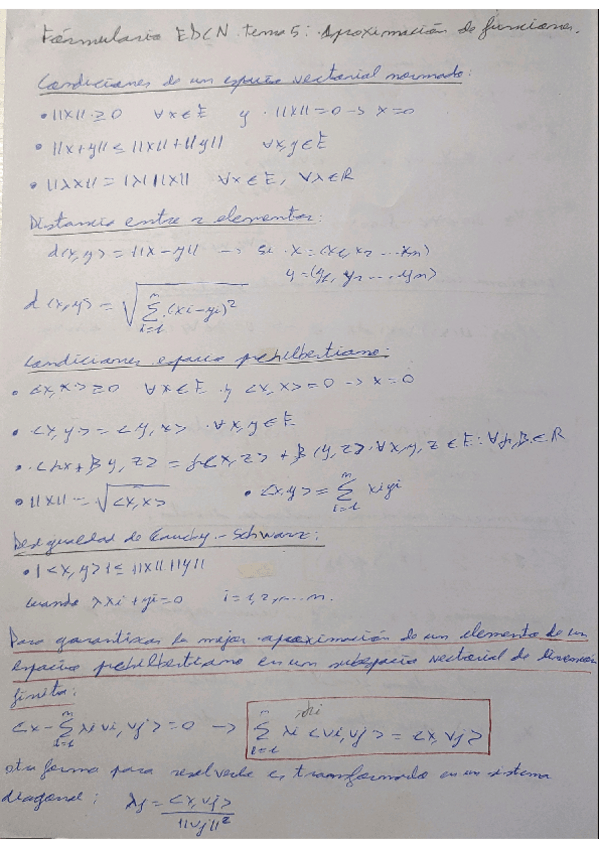 Fórmulario EDCN tema 5: Aproximación de funciones.
Condiciones de un espacio vectorial normado:
• ||x|| ≥ 0 ∀x∈E y · ||x|| = 0 -> x = 0
• ||x+y|| ≤ ||x|| + ||y|| ∀x,y∈E
• ||λx|| = |λ| ||x|| ∀x∈E, ∀λ∈R
Distancia entre 2 elementos:
d(x,y) = ||x-y|| -> si · x = (x1, x2 ... xn)
y = (y1, y2 ... yn)
d(x,y) = √(∑_{i=1}^{n} (xi-yi)²)
Condiciones espacio prehilbertiano:
• <x,x> ≥ 0 ∀x∈E y <x,x> = 0 -> x = 0
• <x,y> = <y,x> · ∀x,y∈E
• <μx+βy, z> = μ<x,z> + β(y,z> · ∀x,y,z∈E: ∀μ,β∈R
• ||x|| = √<x,x> • <x,y> = ∑_{i=1}^{n} xiyi
Desigualdad de Cauchy-Schwarz:
• |<x,y>| ≤ ||x|| ||y||
cuando λxi + yi = 0 i = 1,2,...n.
Para garantizar la mejor aproximación de un elemento de un
espacio prehilbertiano en un subespacio vectorial de dimensión
finita:
<x - ∑_{i=1}^{n} λivi, vj> = 0 -> ∑_{i=1}^{n} λi <vi,vj> = <x,vj>
otra forma para resolverlo es transformado en un sistema
diagonal: λj = <x,vj> / ||vj||²